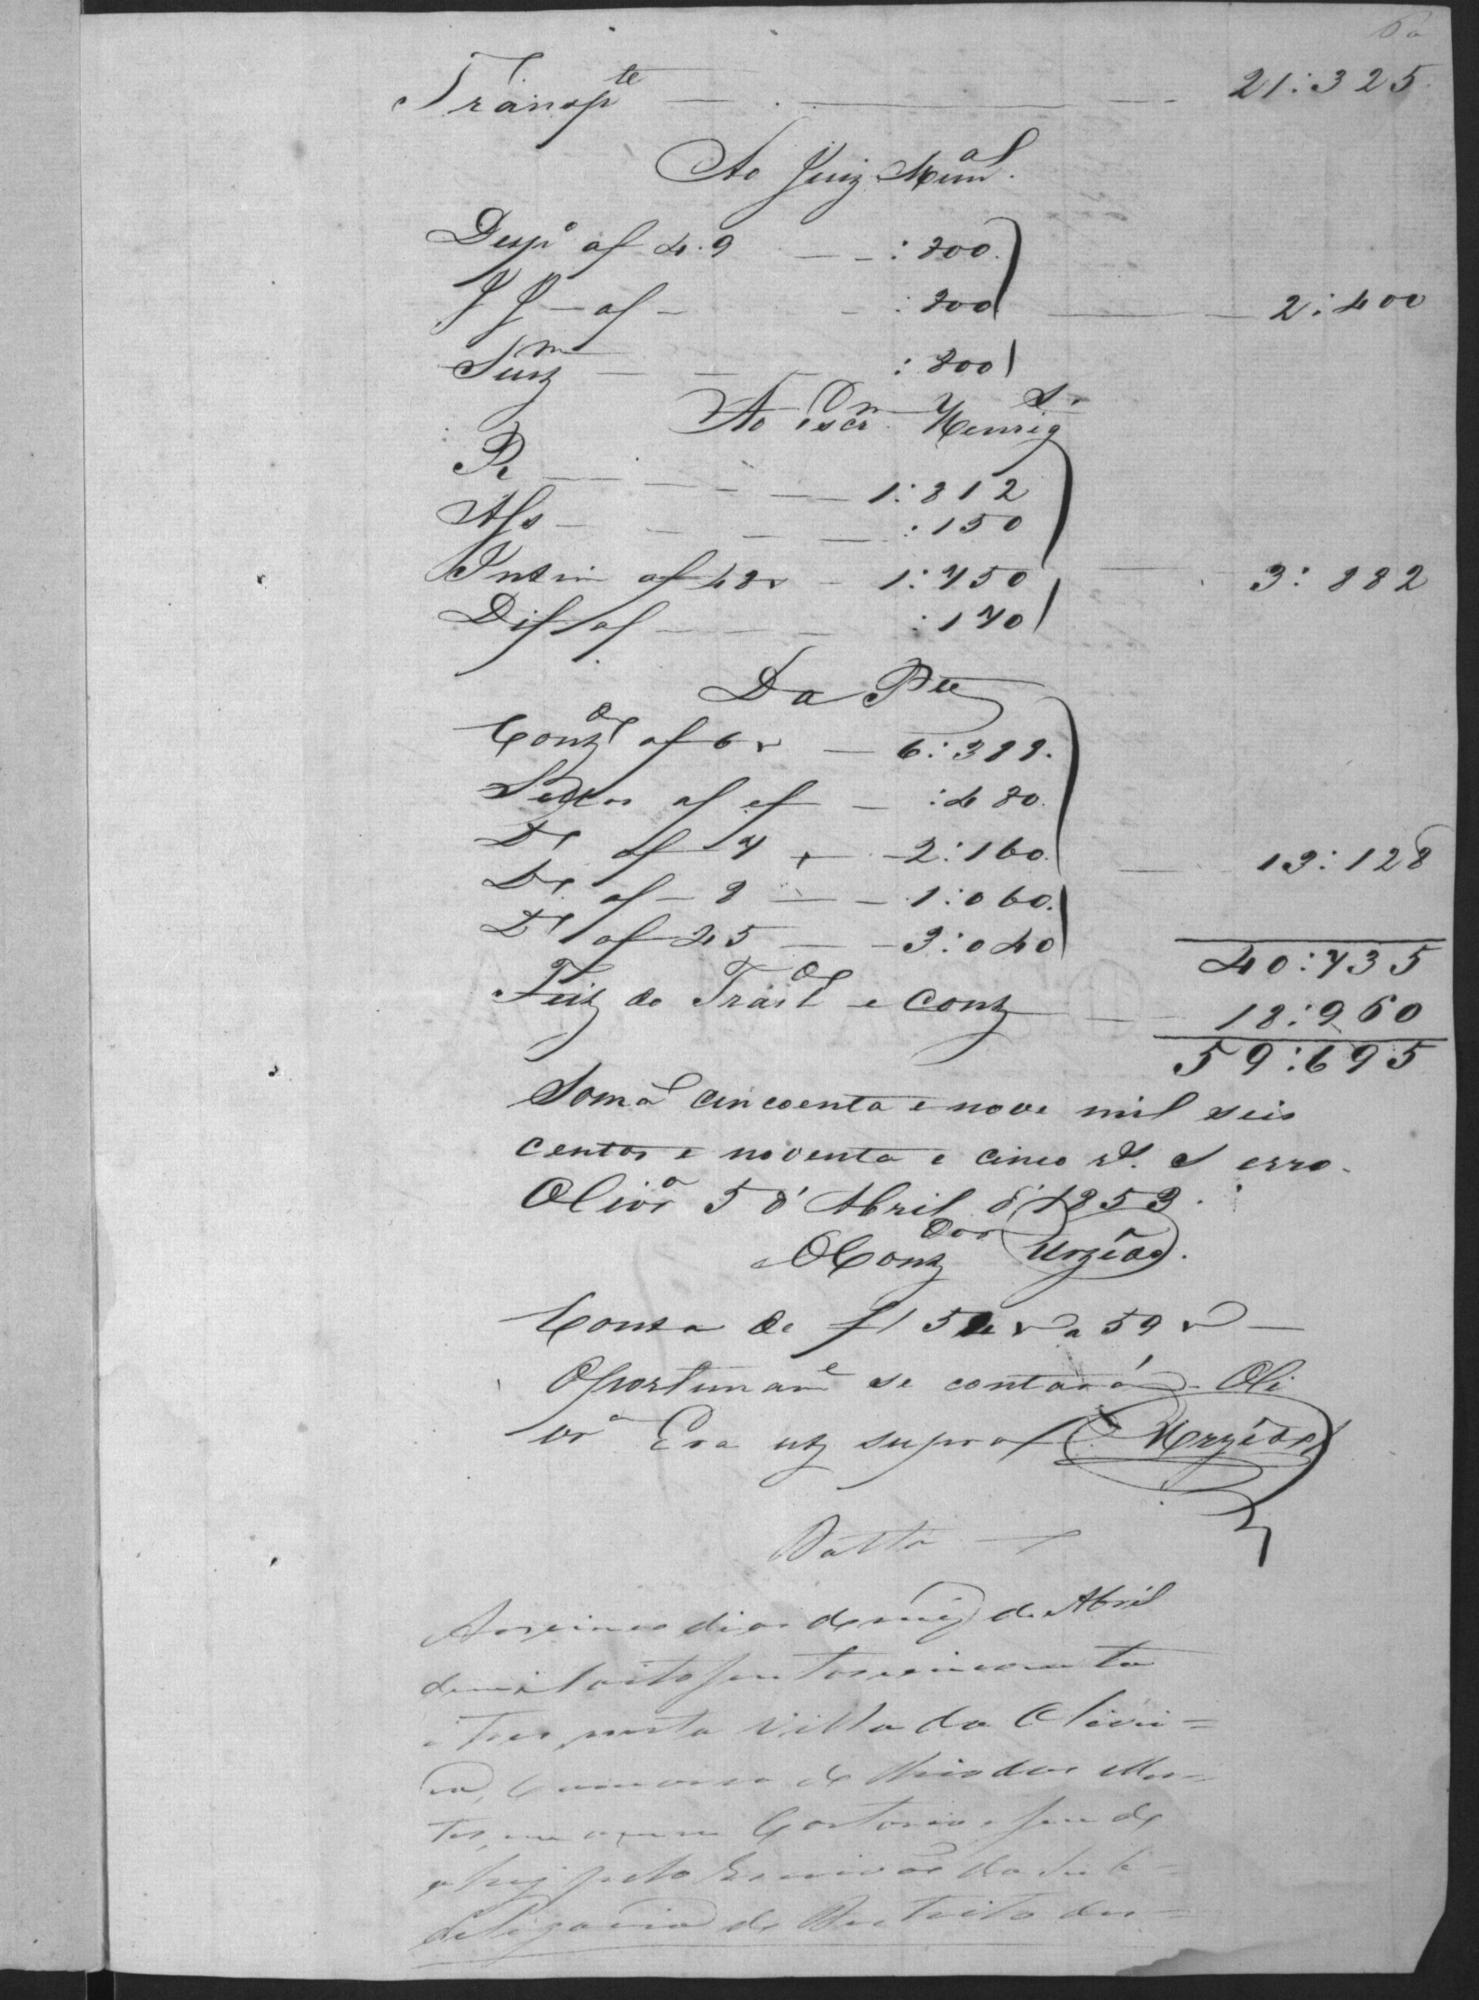 60
Transpte 21:325
Ao Juiz Munal.
Despo af 49 :800
J J af :800 2:400
Juntm :800
Ao Escrm Henriqs.
R 1:812
Als :150
Intim af 48v 1:750 3:882
Dif af :170
Da Pte
Contde af 6v 6:388.
Sellos af ef :480
Do af 7 2:160 13:128
Do af 8 1:060
Do af 45 3:040
40:735
Feitz do Trasde e Cont 18:960
59:695
Somã cincoenta e nove mil seis
centos e noventa e cinco rs. S erro.
Olivra 5 d' Abril d' 1853.
O Contdor Urzêda.
Conta de fl 5 v a 59 v
Oportuname se contará. Oli
vra Era ut supra Urzêda
Datta
Aos cinco dias do mez de Abril
de mil oito sentos e cincoenta
e tres, nesta Villa da Olivei=
ra, Comarca do Rio das Mor=
tes, em o meu Cartorio, sendo
ahi pelo Escrivão da Sub=
deligacia do Destrito des=